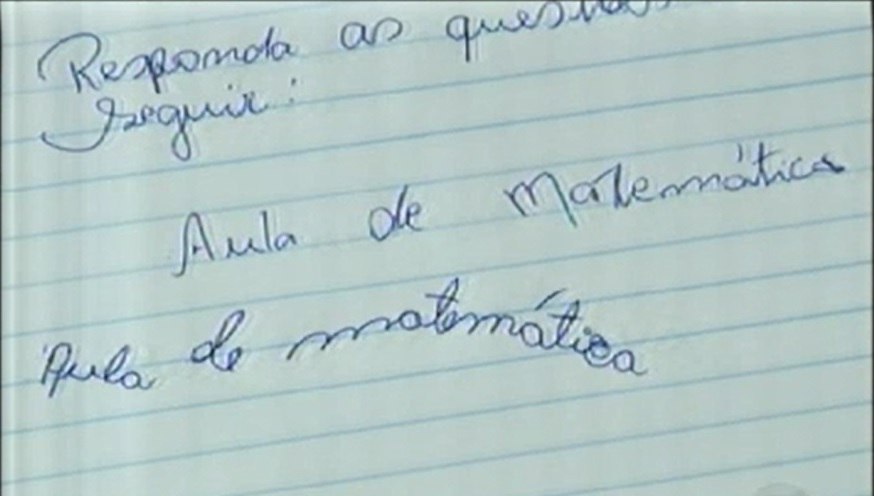 Responda as questões
seguir:
Aula de Matemática
Aula de matemática